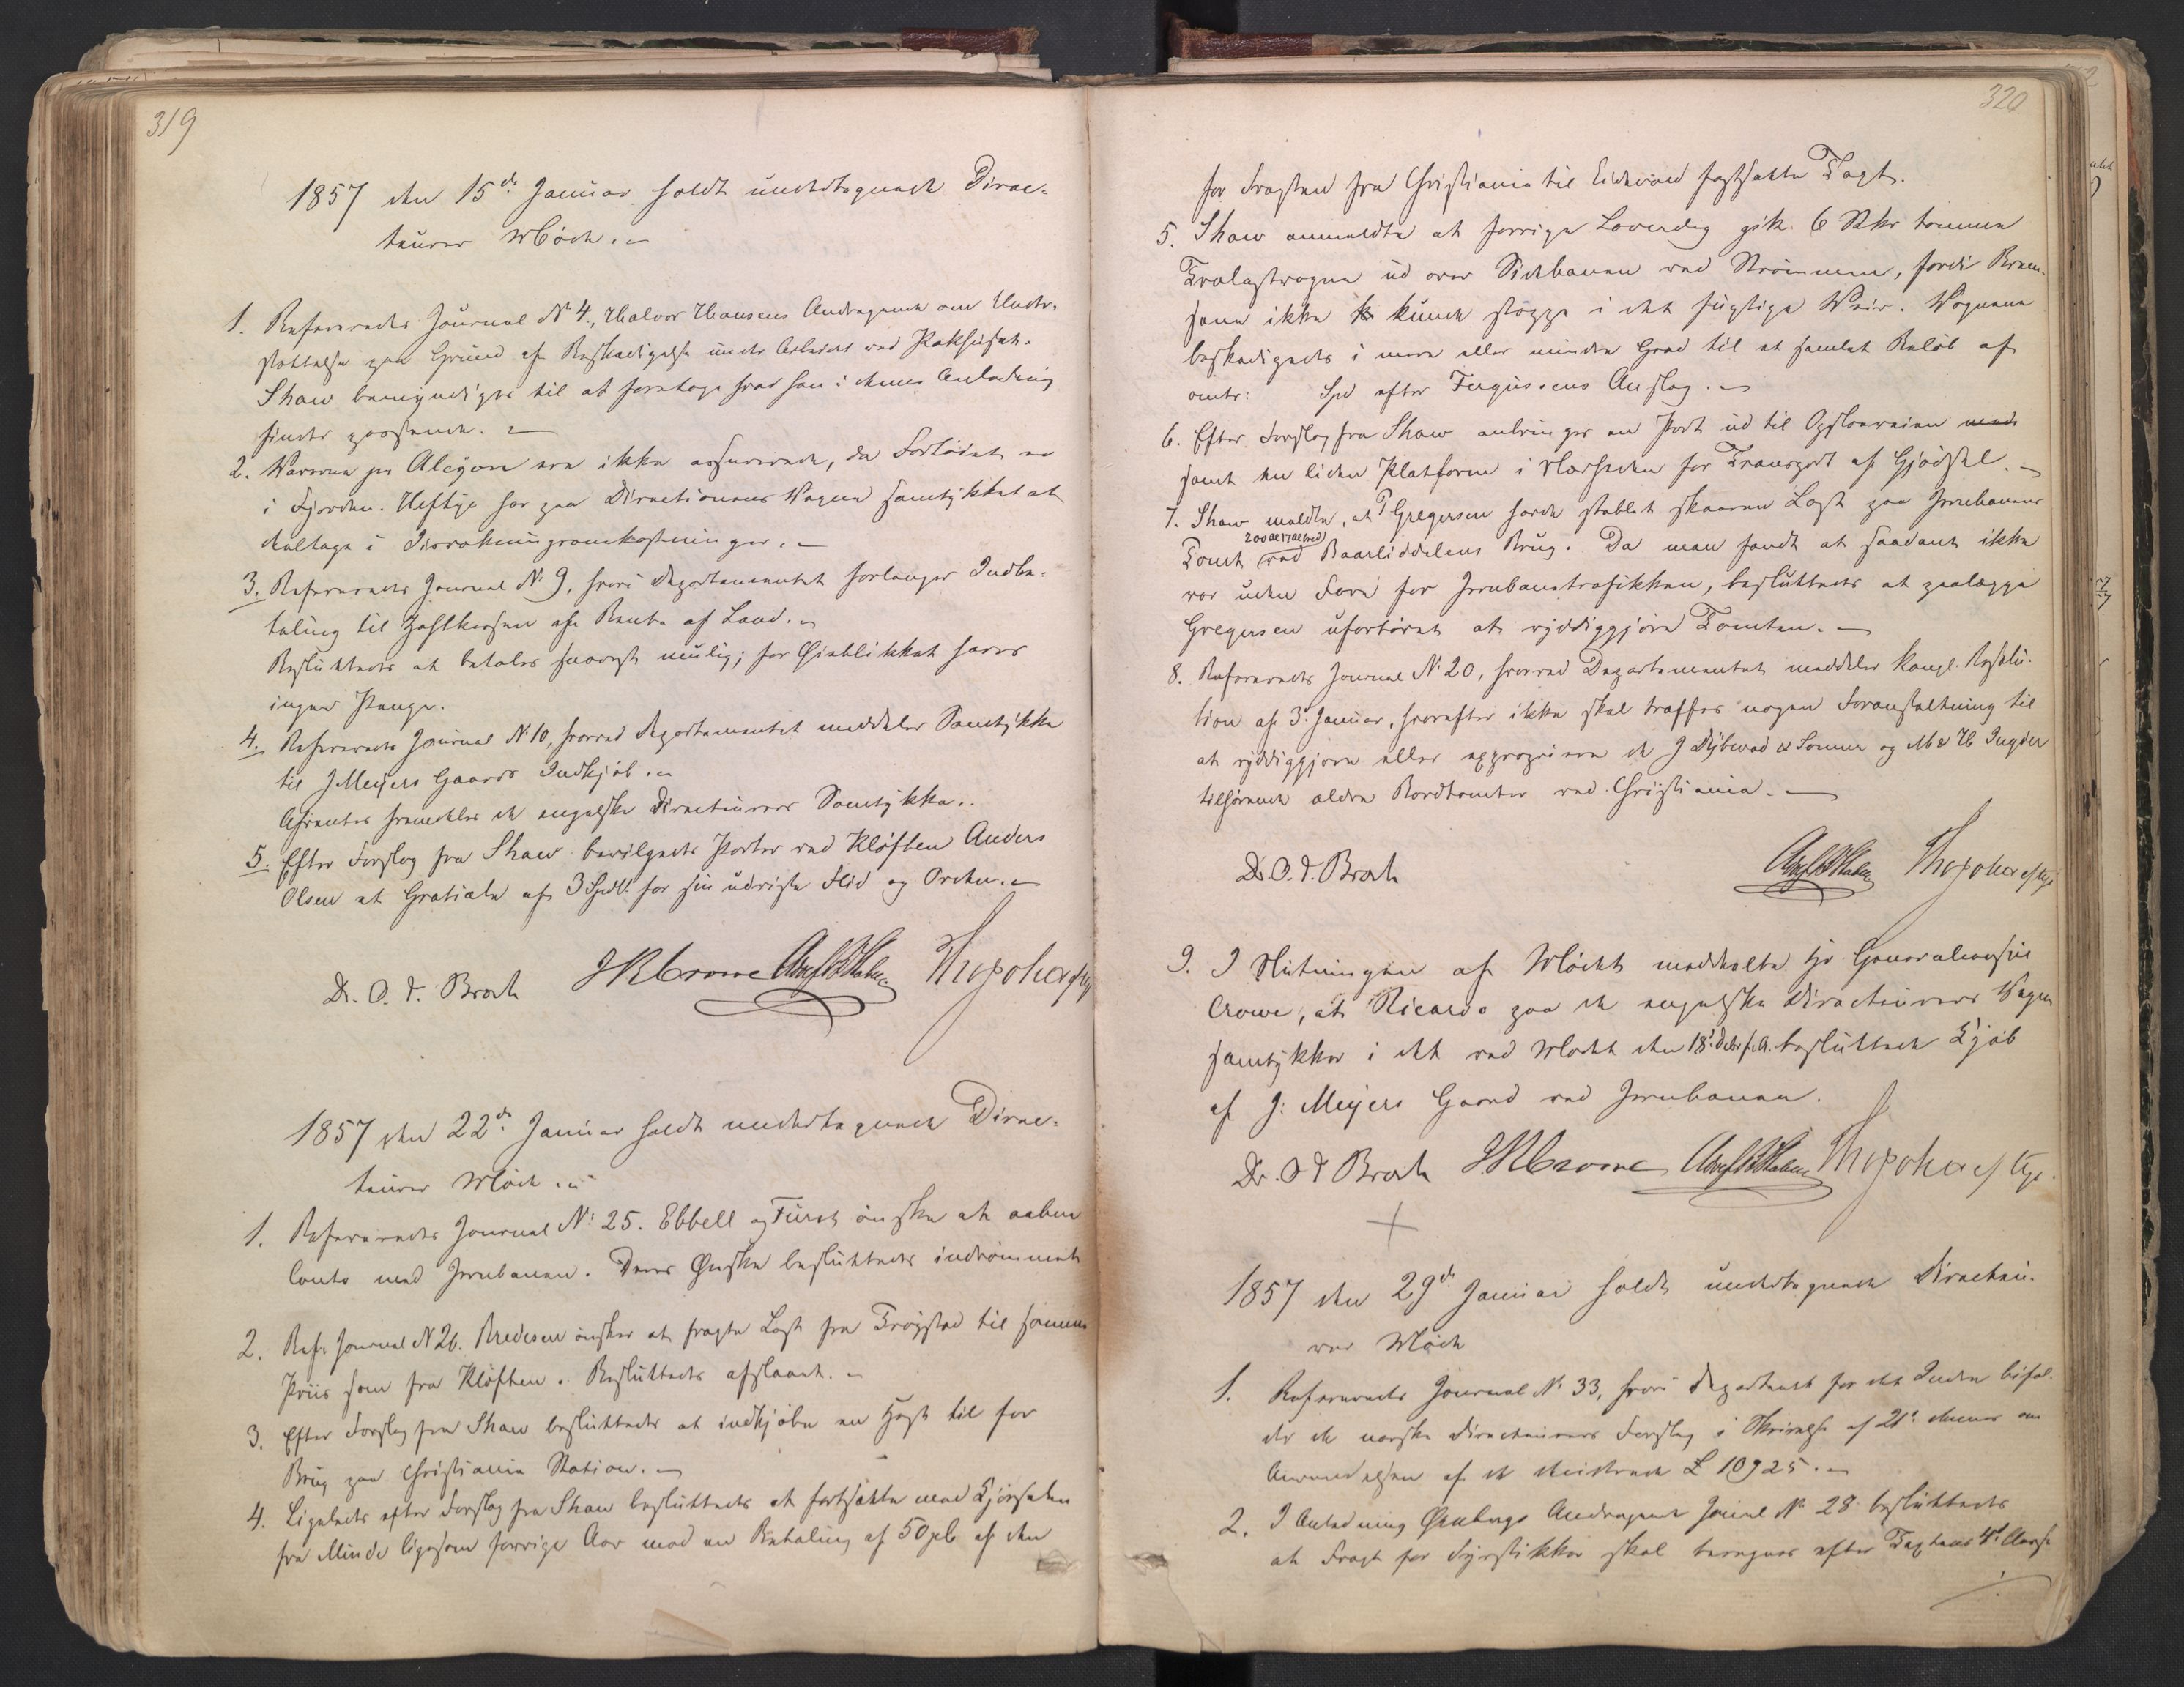 319
1857 den 15de Januar holdt undertegnede Direc-
teurer Möde.
1. Refereredes Journal No 4, Halvor Hansens Andragende om Under-
støttelse paa Grund af Beskadigelse under Arbeidet ved Pakhuset.
Shaw bemyndiges til at foretage hvad han i denne Anledning
finder passende.
2. Varerne pr Alcyon ere ikke assurerede, da Fartöiet er
i Fjorden. Heftye har paa Directionens Vegne samtykket at
deltage i Isrökningsomkostninger.
3. Refereredes Journal No 9, hvori Departementet forlanger Indbe-
taling til Zahlkassen af Rente af Laan.
Besluttedes at betales snarest mulig; for Öieblikket haves
ingen Penge.
4. Refereredes Journal No 10, hvorved Departementet meddeler Samtykke
til J Meyers Gaards Indkjøb.
Afventes fremdeles de engelske Directeurers Samtykke.
5. Efter Forslag fra Shaw bevilgedes Porter ved Kløften Anders
Olsen et Gratiale af 3 Spdl. for sin udviste Flid og Orden.
Dr. O. J. Broch JRCrowe Thos Joh Heftye
1857 den 22de Januar holdt undertegnede Direc-
teurer Möde.
1. Refereredes Journal No: 25. Ebbell og Fürst önske at aabne
Conto med Jernbanen. Deres Ønske besluttedes indrömmet
2. Ref. Journal No 26. Bredesen önsker at fragte Last fra Trøgstad til samme
Priis som fra Kløften. Besluttedes afslaaet.
3. Efter Forslag fra Shaw besluttedes at indkjøbe en Hest til for
Brug paa Christiania Station.
4. Ligeledes efter Forslag fra Shaw besluttedes at fortsætte med Kjørselen
fra Minde ligesom forrige Aar mod en Betaling af 50 pCt af den
320
for Fragten fra Christiania til Eidsvold fastsatte Taxt.
5. Shaw anmeldte at forrige Løverdag gik 6 Stkr tomme
Trælastvogne ud over Sidebanen ved Strømmen, fordi Brem-
sene ikke k kunde stoppe i det fugtige Veir. Vognene
beskadigedes i mere eller mindre Grad til et samlet Beløb af
omtr: Spd efter Fergussons Anslag.
6. Efter Forslag fra Shaw anbringes en Port ud til Opsloveien med
samt en liden Platform i Nærheden for Transport af Gjødsel.
7. Shaw meldte, at T Gregersen havde stablet skaaren Last paa Jernbanens
Tomt ved Baarliddelens Brug. Da man fandt at saadant ikke
var uden Fare for Jernbanetrafikken, besluttedes at paalægge
Gregersen ufortövet at ryddiggjöre Tomten.
8. Refereredes Journal No 20, hvorved Departementet meddeler kongl. Resolu-
tion af 3. Januar, hvorefter ikke skal træffes nogen Foranstaltning til
at ryddiggjøre eller expropriere de J Dybwad & Sönner og M & H Ingier
tilhørende ældre Bordtomter ved Christiania.
Dr. O. J. Broch Thos Joh Heftye
9. I Slutningen af Mödet meddeelte Hr Generalconsul
Crowe, at Ricardo paa de engelske Directeurers Vegne
samtykker i det ved Mödet den 18. Decbr f. A. besluttede Kjøb
af J: Meyers Gaard ved Jernbanen.
Dr. O J Broch JRCrowe Thos Joh Heftye
1857 den 29de Januar holdt undertegnede Directeu-
rer Möde
1. Refereredes Journal No 33, hvori Departemt for det Indre bifal-
der de norske Directeurers Forslag i Skrivelse af 21. dennes om
Anvendelsen af de deiserede £ 10925.
2. I Anledning Andragende Journal No 28 besluttedes
at Fragt for Fyrstikker skal beregnes efter Taxtens 4de Classe